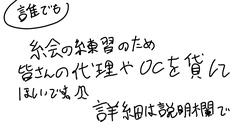 誰でも
糸会の練習のため
皆さんの代理やOCを貸して
ほしいです
詳細は説明欄で